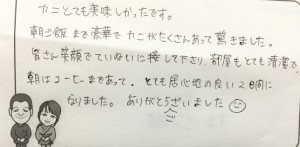 カニとても美味しかったです。
朝ご飯まで豪華でカニがたくさんあって驚きました。
皆さん笑顔でていねいに接して下さり、部屋もとても清潔で
朝はコーヒーまであって、とても居心地の良い2日間に
なりました。ありがとうございました